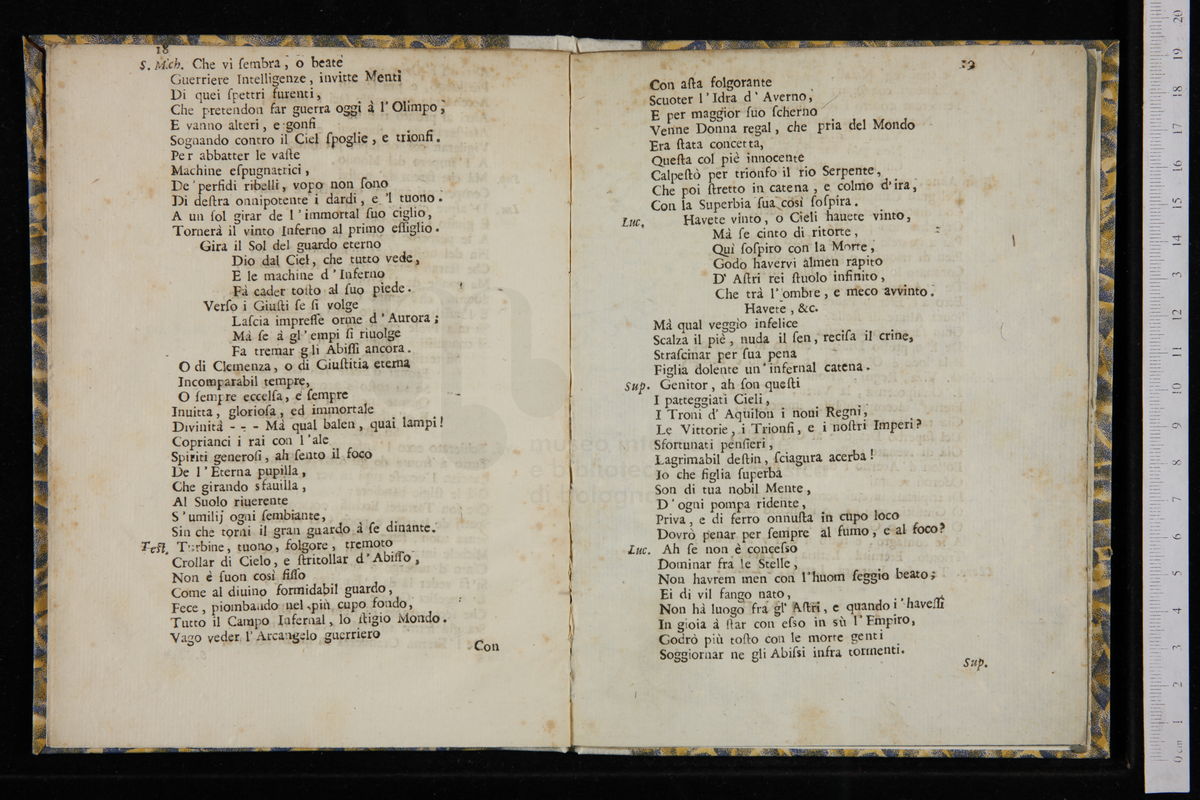 18
S. Mich. Che vi ſembra, o beate
Guerriere Intelligenze, invitte Menti
Di quei ſpettri furenti,
Che pretendon far guerra oggi à l'Olimpo,
E vanno alteri, e gonfi
Sognando contro il Ciel ſpoglie, e trionfi.
Per abbatter le vaſte
Machine eſpugnatrici,
De' perfidi ribelli, vopo non ſono
Di deſtra onnipotente i dardi, e 'l tuono.
A un ſol girar de l'immortal ſuo ciglio,
Tornerà il vinto Inferno al primo eſſiglio.
Gira il Sol del guardo eterno
Dio dal Ciel, che tutto vede,
E le machine d'Inferno
Fà cader toſto al ſuo piede.
Verſo i Giuſti ſe ſi volge
Laſcia impreſſe orme d'Aurora;
Mà ſe à gl'empi ſi riuolge
Fa tremar gli Abiſſi ancora.
O di Clemenza, o di Giuſtitia eterna
Incomparabil tempre,
O ſempre eccelſa, e ſempre
Inuitta, glorioſa, ed immortale
Divinità - - - Mà qual balen, quai lampi!
Coprianci i rai con l'ale
Spiriti generoſi, ah ſento il foco
De l'Eterna pupilla,
Che girando sfauilla,
Al Suolo riuerente
S'umilij ogni ſembiante,
Sin che torni il gran guardo à ſe dinante.
Teſt. Turbine, tuono, folgore, tremoto
Crollar di Cielo, e ſtritollar d'Abiſſo,
Non è ſuon così fiſſo
Come al diuino formidabil guardo,
Fece, piombando nel più cupo fondo,
Tutto il Campo Infernal, lo ſtigio Mondo.
Vago veder l'Arcangelo guerriero
Con
19
Con aſta folgorante
Scuoter l'Idra d'Averno,
E per maggior ſuo ſcherno
Venne Donna regal, che pria del Mondo
Era ſtata concetta,
Queſta col piè innocente
Calpeſtò per trionfo il rio Serpente,
Che poi ſtretto in catena, e colmo d'ira,
Con la Superbia ſua così ſoſpira.
Luc. Havete vinto, o Cieli hauete vinto,
Mà ſe cinto di ritorte,
Quì ſoſpiro con la Morte,
Godo havervi àlmen rapito
D'Aſtri rei ſtuolo infinito,
Che trà l'ombre, e meco avvinto.
Havete, &c.
Mà qual veggio infelice
Scalza il piè, nuda il ſen, reciſa il crine,
Straſcinar per ſua pena
Figlia dolente un'infernal catena.
Sup. Genitor, ah ſon queſti
I patteggiati Cieli,
I Troni d'Aquilon i noui Regni,
Le Vittorie, i Trionfi, e i noſtri Imperi?
Sfortunati penſieri,
Lagrimabil deſtin, ſciagura acerba!
Io che figlia ſuperba
Son di tua nobil Mente,
D'ogni pompa ridente,
Priva, e di ferro onnuſta in cupo loco
Dovrò penar per ſempre al fumo, e al foco?
Luc. Ah ſe non è conceſso
Dominar fra le Stelle,
Non havrem men con l'huom ſeggio beato;
Ei di vil fango nato,
Non hà luogo frà gl'Aſtri, e quando i'haveſſi
In gioia à ſtar con eſso in sù l'Empiro,
Godrò più toſto con le morte genti
Soggiornar ne gli Abiſsi infra tormenti.
Sup.